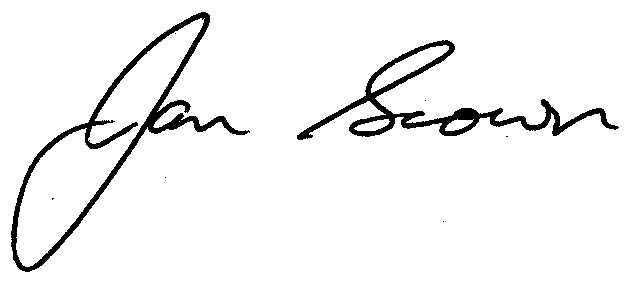 Jan Scown